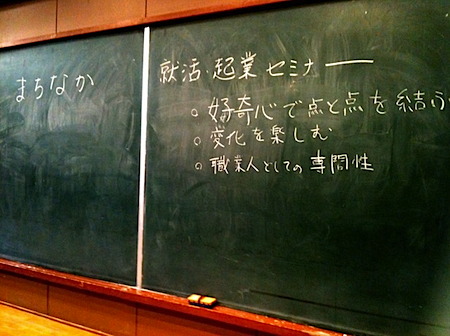 まちなか
就活・起業セミナー
○ 好奇心で点と点を結ぶ
○ 変化を楽しむ
○ 職業人としての専門性